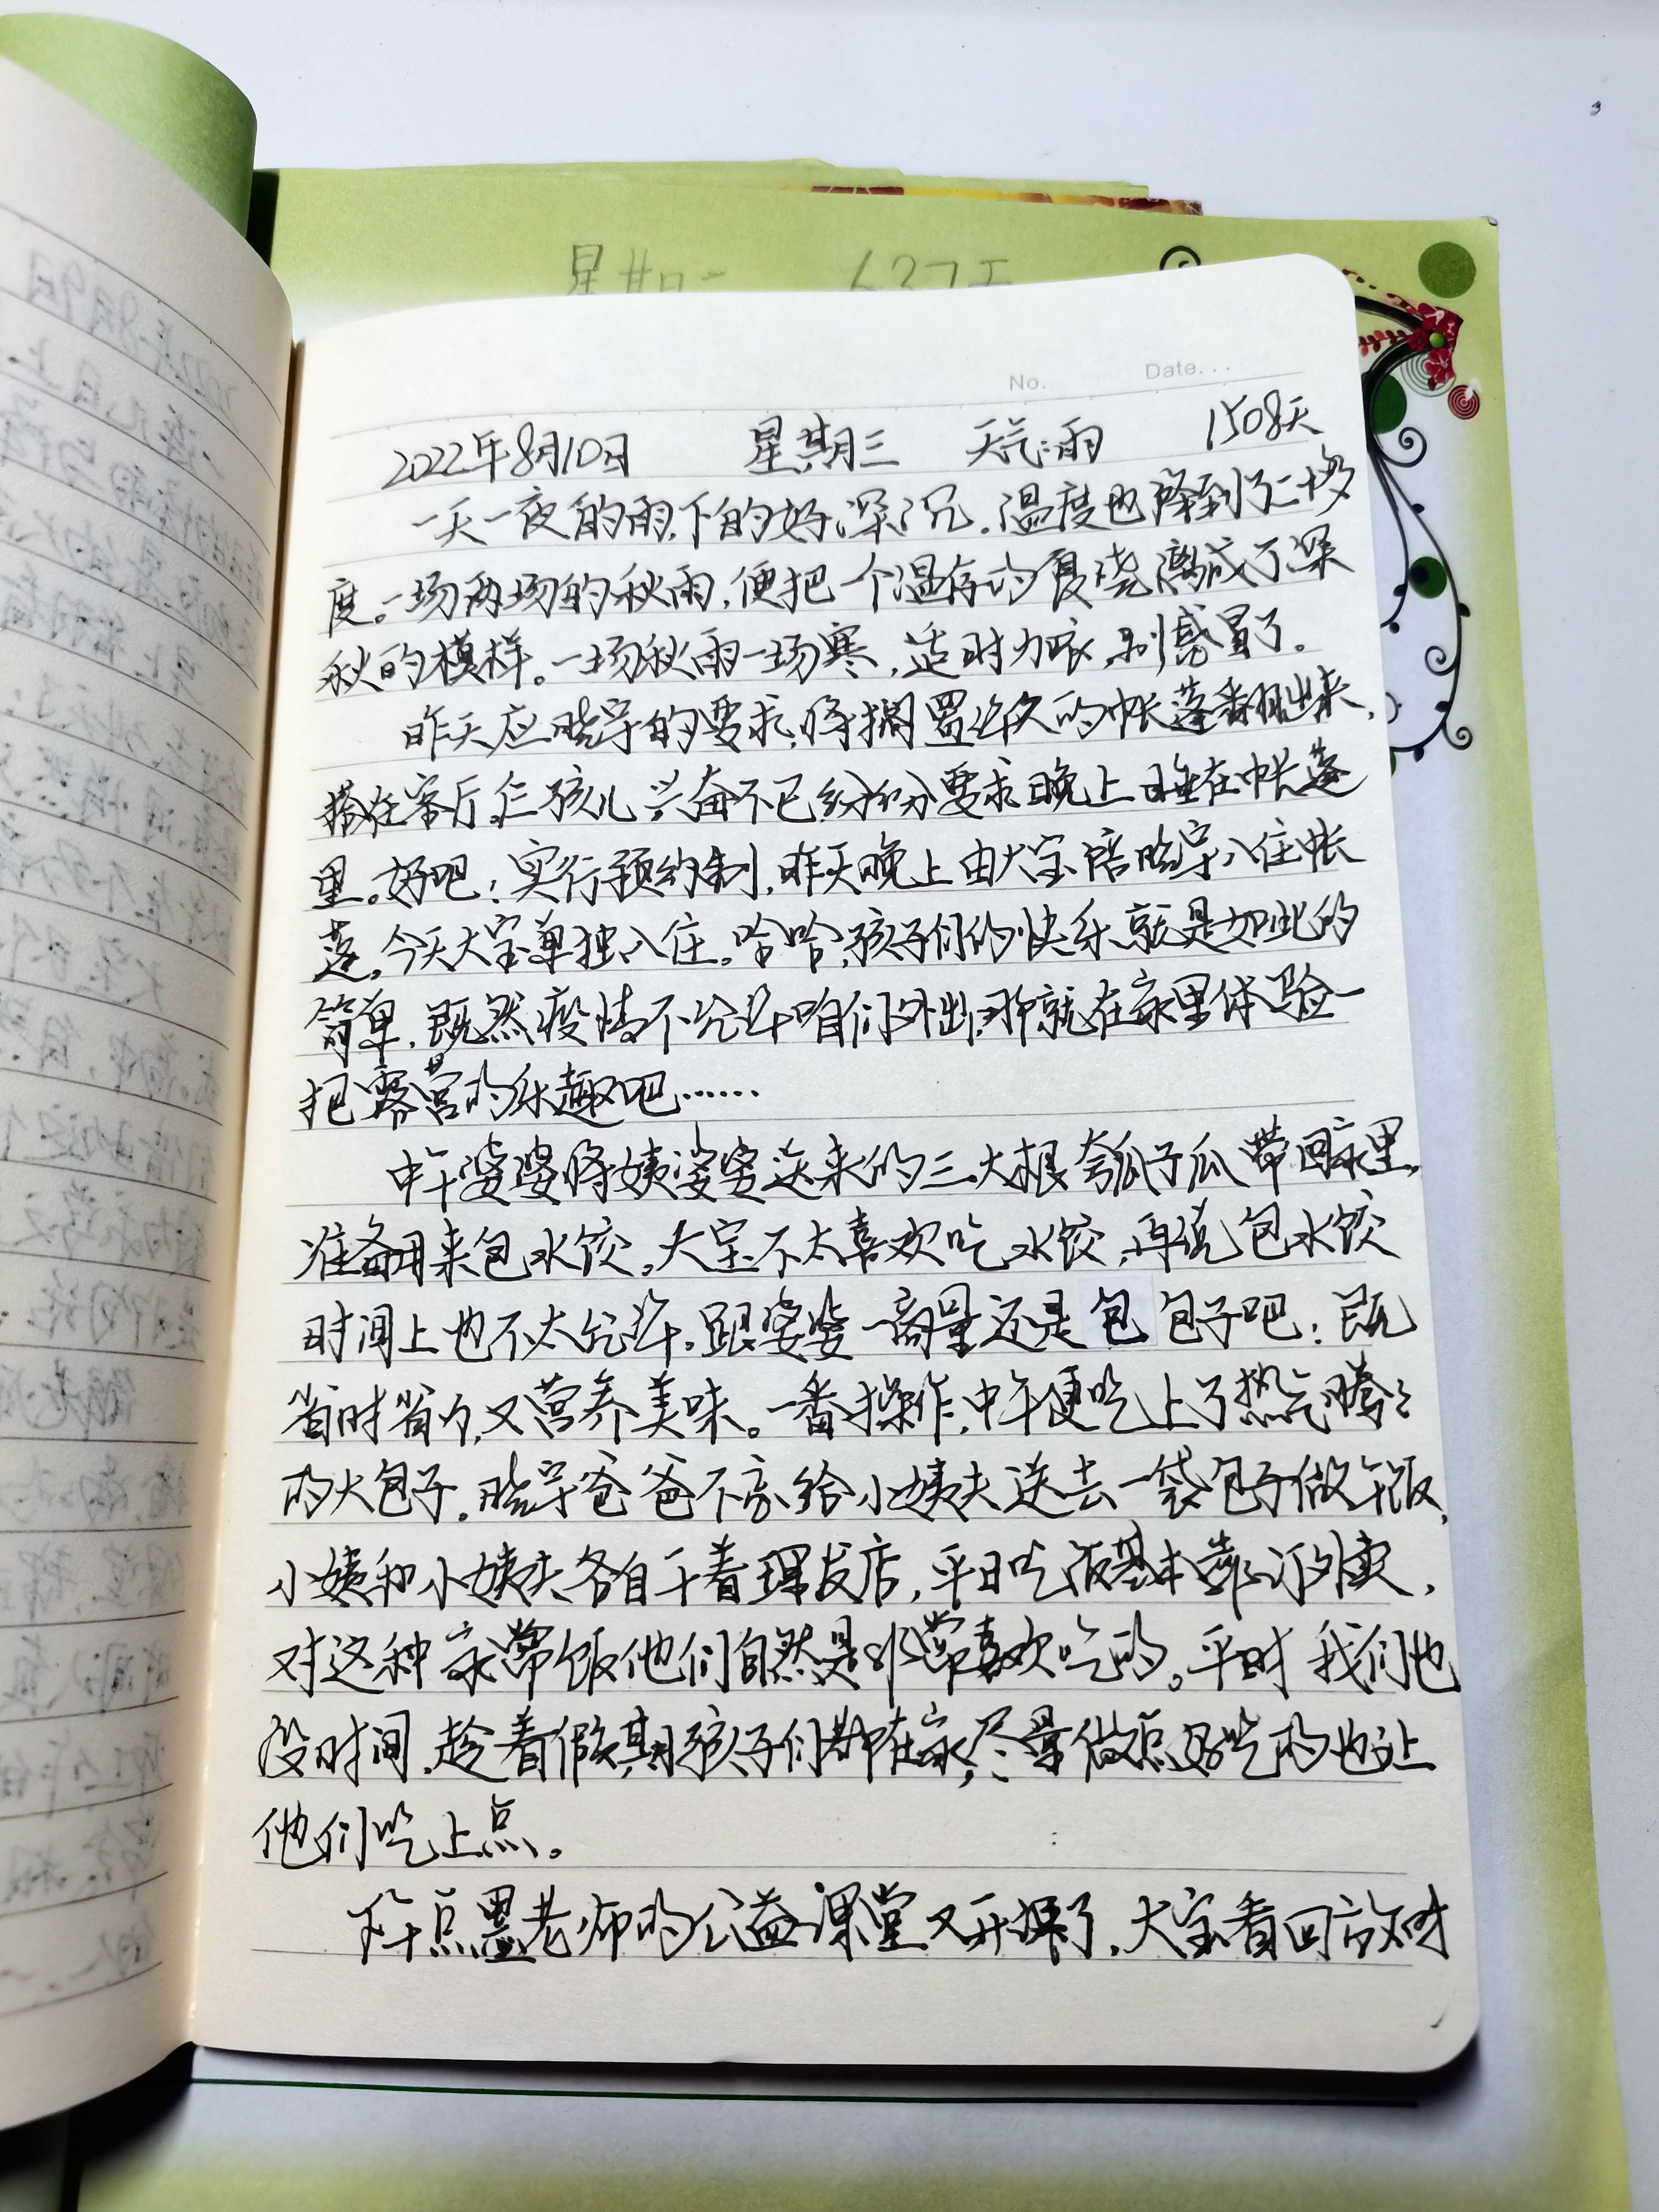 星期二 637天
No. Date...
2022年8月10日 星期三 天气:雨 1508天
一天一夜的雨,下的好深沉,温度也降到了二十多
度。一场两场的秋雨,便把一个温存的夏浇漓成了深
秋的模样。一场秋雨一场寒,适时加衣,别感冒了。
昨天应晓宇的要求,将搁置许久的帐蓬翻出来,
搭在客厅,仨孩儿兴奋不已纷纷要求晚上睡在帐蓬
里。好吧!实行预约制,昨天晚上由大宝陪晓宇入住帐
蓬,今天大宝单独入住。哈哈,孩子们的快乐就是如此的
简单,既然疫情不允许咱们外出,那就在家里体验一
把露营的乐趣吧……
中午婆婆将姨婆婆送来的三大根夸瓜子瓜带回家里,
准备用来包水饺。大宝不太喜欢吃水饺,再说包水饺
时间上也不太允许,跟婆婆一商量还是包包子吧!既
省时省力,又营养美味。一番操作,中午便吃上了热气腾腾
的大包子。晓宇爸爸不忘给小姨夫送去一袋包子做午饭,
小姨和小姨夫各自干着理发店,平日吃饭基本靠订外卖,
对这种家常饭他们自然是非常喜欢吃的。平时我们也
没时间,趁着假期孩子们都在家,尽量做点好吃的也让
他们吃上点。
下午点墨老师的公益课堂又开课了,大宝看回放时